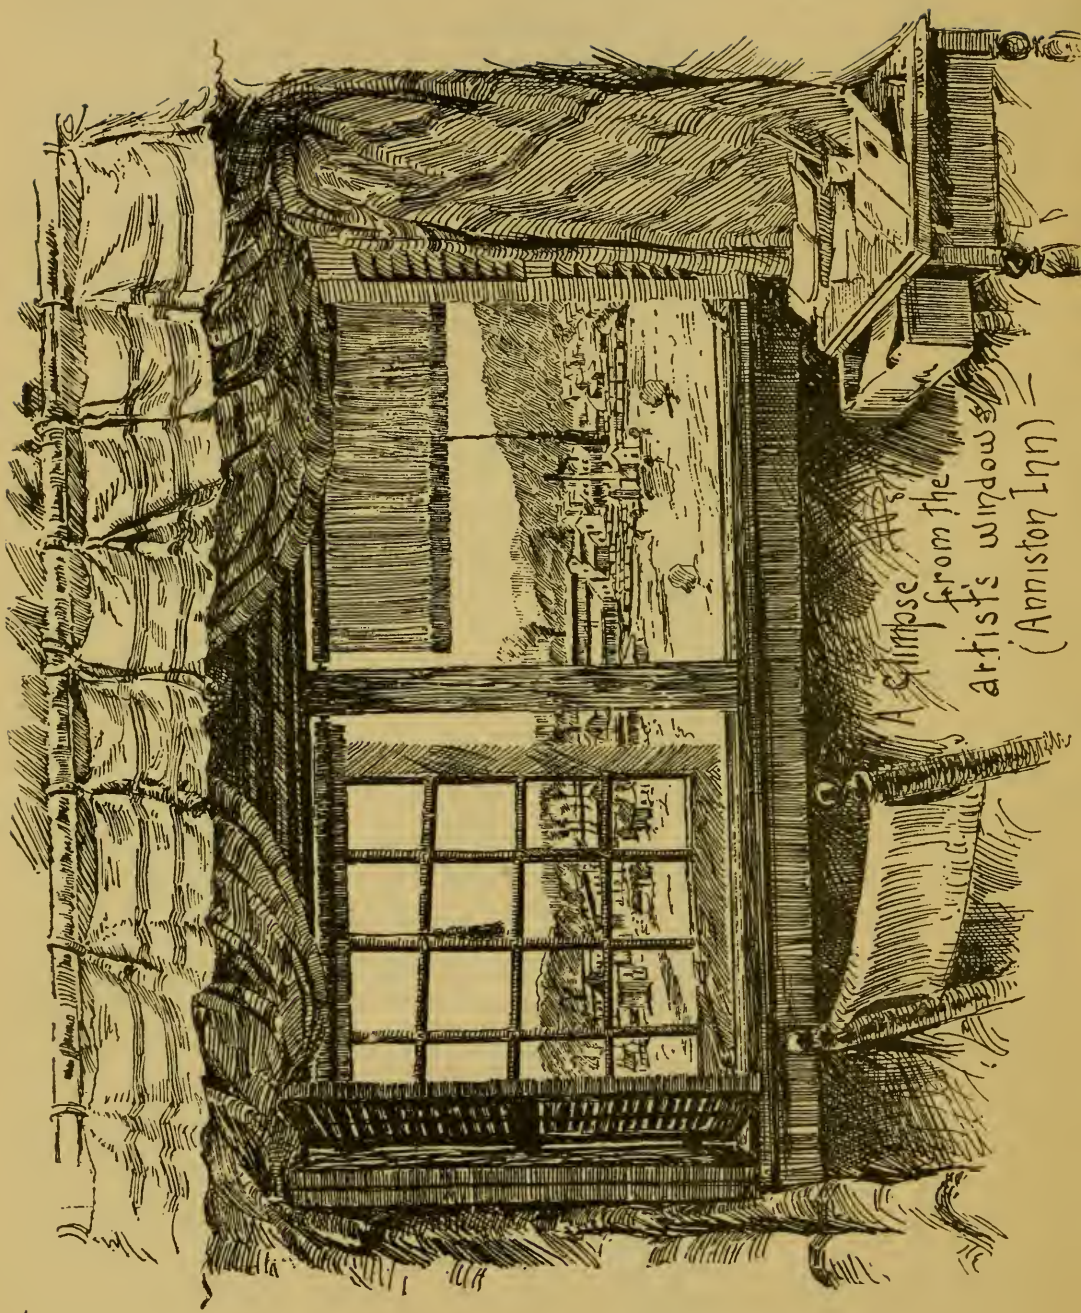 A Glimpse
from the
artist's window
(Anniston Inn)